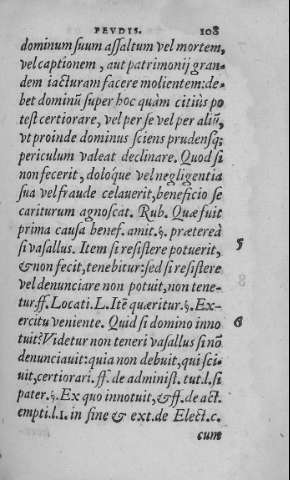 FEVDIS. 108
dominum suum assaltum vel mortem,
vel captionem, aut patrimonij gran-
dem iacturam facere molientem: de-
bet dominũ super hoc quàm citiùs po
test certiorare, vel per se vel per aliũ,
vt proinde dominus sciens prudensq;
periculum valeat declinare. Quod si
non fecerit, doloque vel negligentia
sua vel fraude celauerit, beneficio se
cariturum agnoscat. Rub. Quæ fuit
prima causa benef. amit. §. prætereà
si vasallus. Item si resistere potuerit, 5
& non fecit, tenebitur: sed si resistere
vel denunciare non potuit, non tene-
tur. ff. Locati. L. Itẽ quæritur. §. Ex-
ercitu veniente. Quid si domino inno 6
tuit? Videtur non teneri vasallus si nõ
denunciauit: quia non debuit, qui sci-
uit, certiorari. ff. de administ. tut. l. si
pater. §. Ex quo innotuit, & ff. de act.
empti. l. 1. in fine & ext. de Elect. c.
cum